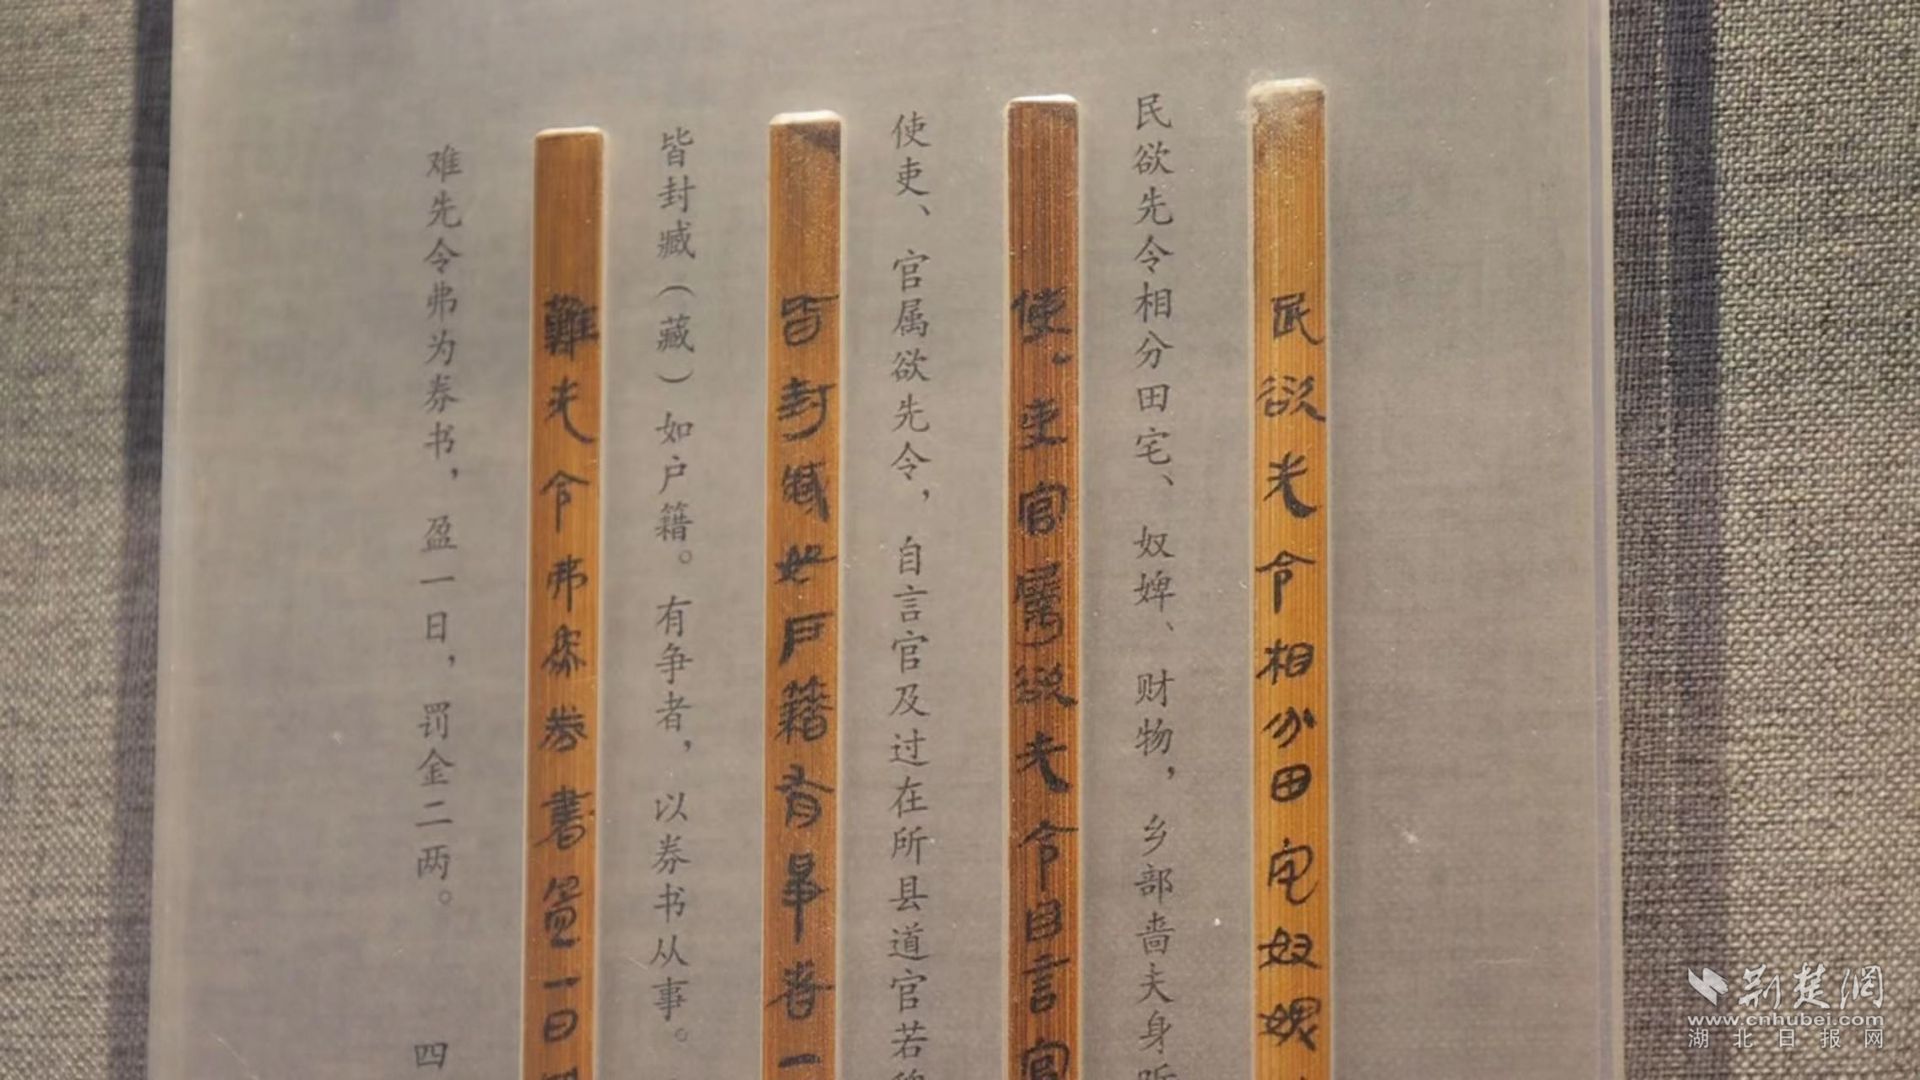 民欲先令相分田宅奴婢
民欲先令相分田宅、奴婢、财物，乡部啬夫身
使·吏官屬欲先令自言官
使吏、官属欲先令，自言官及过在所县道官若
皆封臧如戶籍有爭者一
皆封臧（藏）如户籍。有争者，以券书从事。
難先令弗爲券書盈一日
难先令弗为券书，盈一日，罚金二两。 四
荆楚網
www.cnhubei.com
湖北日报网